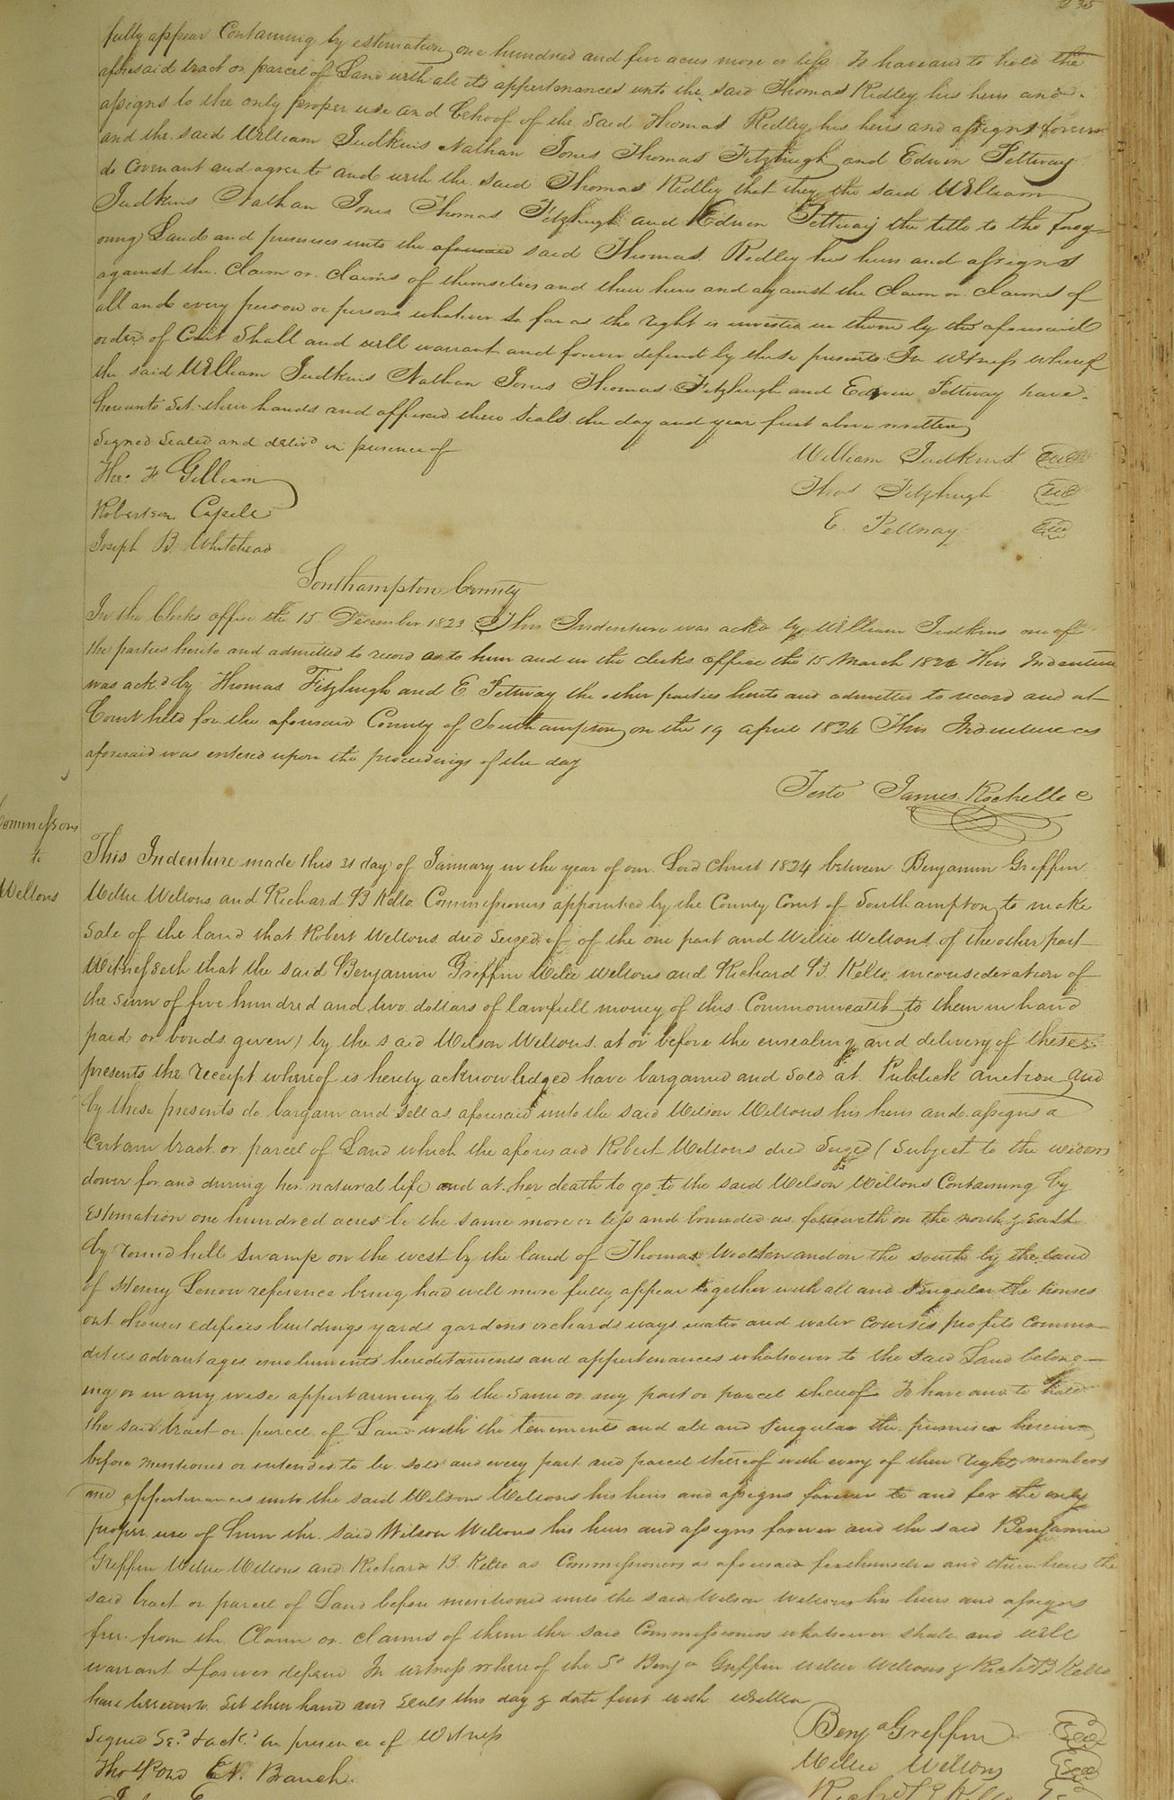 235
fully appear Containing by estimation one hundred and five acres more or less To have and to hold the
aforesaid tract or parcel of Land with all its appertenances unto the said Thomas Ridley his heirs and
assigns to the only proper use and behoof of the said Thomas Ridley his heirs and assigns forever
and the said William Judkins Nathan Jones Thomas Fitzhugh and Edwin Pettway
do Covenant and agree to and with the said Thomas Ridley that they the said William
Judkins Nathan Jones Thomas Fitzhugh and Edwin Pettway the title to the foreg=
oing Land and premises unto the said Thomas Ridley his heirs and assigns
against the Claim or Claims of themselves and their heirs and against the Claim or Claims of
all and every person or persons whatever so far as the right is invested in them by the aforesaid
order of Court Shall and will warrant and forever defend by these presents In witness whereof
the said William Judkins Nathan Jones Thomas Fitzhugh and Edwin Pettway have
hereunto Set their hands and affixed their Seals the day and year first above written
Signed Sealed and delivd in presence of
William Judkins Seal
Thos Fitzhugh Seal
E. Pettway Seal
Gilliam
Robertson Capell
Joseph B Whitehead
Southampton County
In the Clerks office the 15 December 1823 This Indenture was ackd by William Judkins one of
the parties hereto and admitted to record as to him and in the clerks office the 15 March 1824 This Indenture
was ackd by Thomas Fitzhugh and E Pettway the other parties hereto and admitted to record and at
Court held for the aforesaid County of Southampton on the 19 april 1824 This Indenture as
aforesaid was entered upon the proceedings of the day
Teste James Rochelle C
Commissors
to
Wellons
This Indenture made this 21 day of January in the year of our Lord Christ 1824 between Benjamin Griffin
Willie Wellons and Richard B Kello Commissioners appointed by the County Court of Southampton to make
Sale of the land that Robert Wellons died Seized of of the one part and Willie Wellons of the other part
Witnesseth that the said Benjamin Griffin Willie Wellons and Richard B. Kello in consideration of
the Sum of five hundred and two dollars of lawfull money of this Commonwealth to them in hand
paid or bonds given) by the said Wilson Wellons at or before the ensealing and delivery of these
presents the receipt whereof is hereby acknowledged have bargained and Sold at Publick auction and
by these presents do bargain and Sell as aforesaid unto the said Wilson Wellons his heirs and assigns a
Certain tract or parcel of Land which the aforesaid Robert Wellons died Seized (Subject to the widows
dower for and during her natural life and at her death to go to the said Wilson Wellons Containing by
Estimation one hundred acres be the same more or less and bounded as followeth on the north & East
by round hill Swamp on the west by the land of Thomas and on the south by the land
of Henry Lenow reference being had will more fully appear together with all and Singular the houses
out houses edifices buildings yards gardens orchards ways water and water Courses profits Commo=
dities advantages emoluments hereditaments and appertenances whatsoever to the Said Land belong=
ing or in any wise appertaining to the Same or any part or parcel thereof To have and to hold
the said tract or parcel of Land with the tenements and all and Singular the premises herein
before mentioned or intended to be sold and every part and parcel thereof with every of their rights members
and appertenances unto the said Wilson Wellons his heirs and assigns forever to and for the only
proper use of him the said Wilson Wellons his heirs and assigns forever and the said Benjamin
Griffin Willie Wellons and Richard B. Kello as Commissioners as aforesaid for themselves and their heirs the
said tract or parcel of Land before mentioned unto the said Wilson Wellons his heirs and assigns
free from the Claim or claims of them the said Commissioners whatsoever shall and will
warrant & forever defend In witness whereof the Sd Benja Griffin Willie Wellons & Richd B Kello
have hereunto Set their hand and Seals this day & date first with written
Signed Sd & ackd in presence of Witness
Benja Griffin Seal
Willie Wellons Seal
Richd B Kello
Tho Pond E. Branch